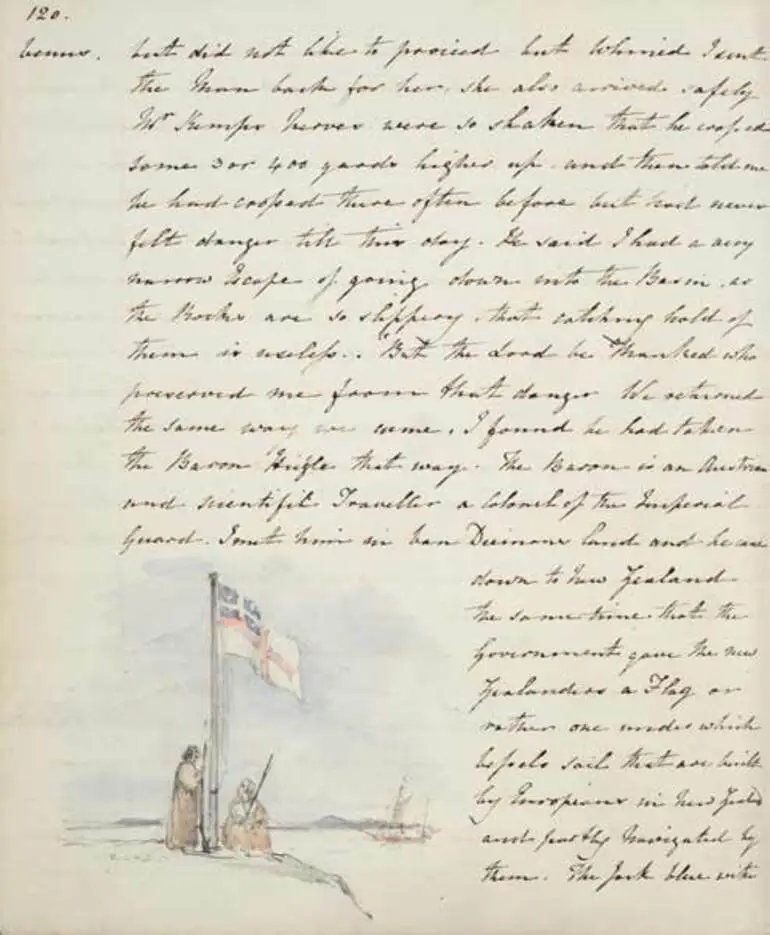 120.
Venus. but did not like to proceed but whined I sent
the Man back for her, she also arrived safely
Mr Kemps Nerves were so shaken that he crossed
some 3 or 400 yards higher up and then told me
he had crossed there often before but had never
felt danger till this day. He said I had a very
narrow Escape of going down into the Basin, as
the Rocks are so slippery, that catching hold of
them is useless.. "But the Lord be "Thanked who
preserved me from that danger We returned
the same way we came, I found he had taken
the Baron Hügle that way. The Baron is an Austrian
and scientific Traveller a Colonel of the Imperial
Guard. I met him in Van Diemans land and he came
down to New Zealand
the same time that the
Government gave the new
Zealanders a Flag or
rather one under which
vessels sail that are built
by Europeans in New Zeald
and partly Navigated by
them. The Jack blue with